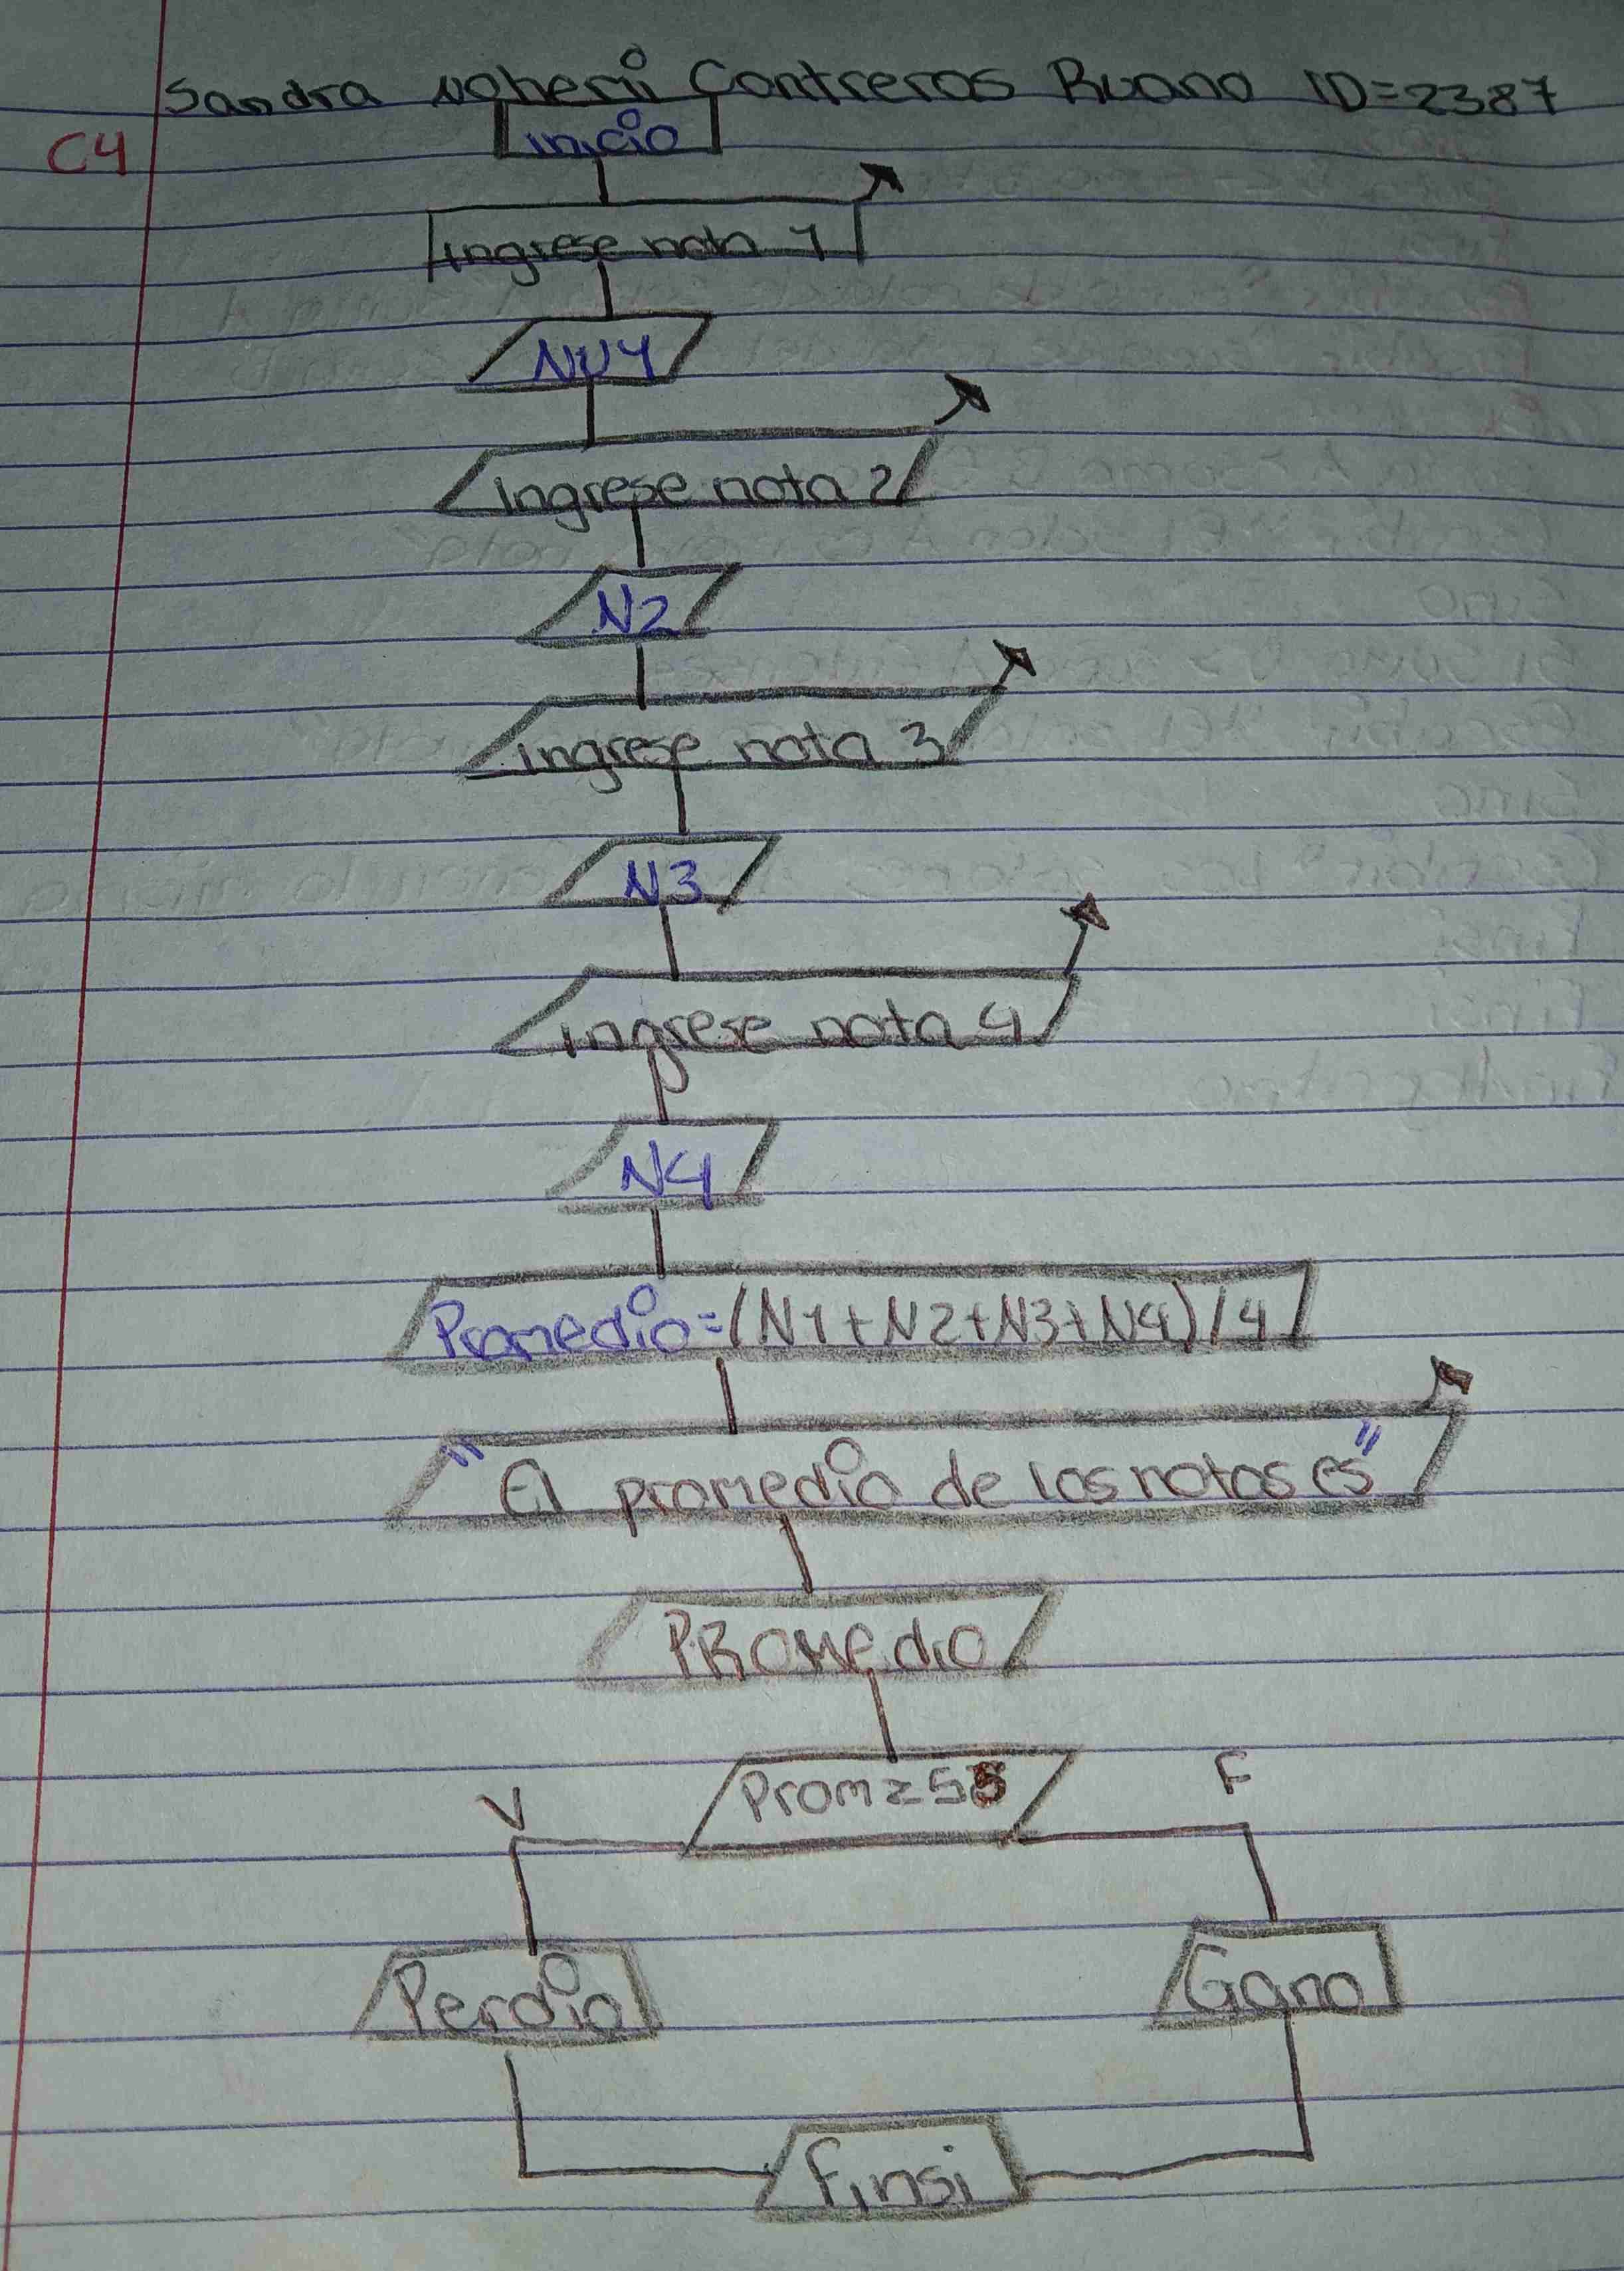 Sandra Nohemi Contreras Ruano ID=2387
C4
inicio
ingrese nota 1
NU1
ingrese nota 2
N2
ingrese nota 3
N3
ingrese nota 4
N4
Promedio=(N1+N2+N3+N4)/4
"El promedio de las notas es"
PROMedio
V Prom≥55 F
Perdio Gano
Finsi